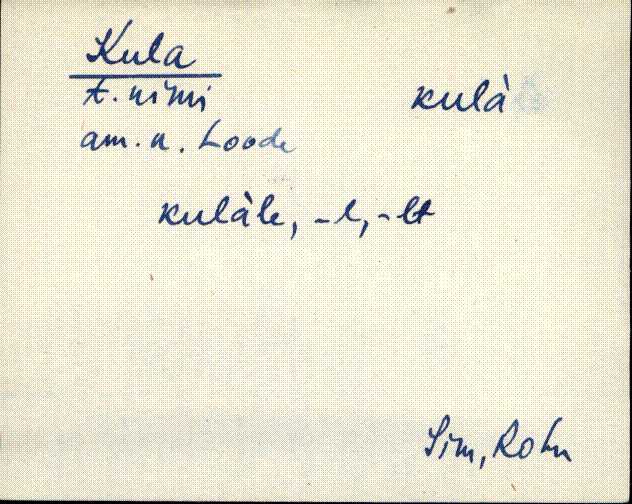 Kula
t. nimi
kulà
am. n. Loode
kulàle, -l, -lt
Sim, Rohu